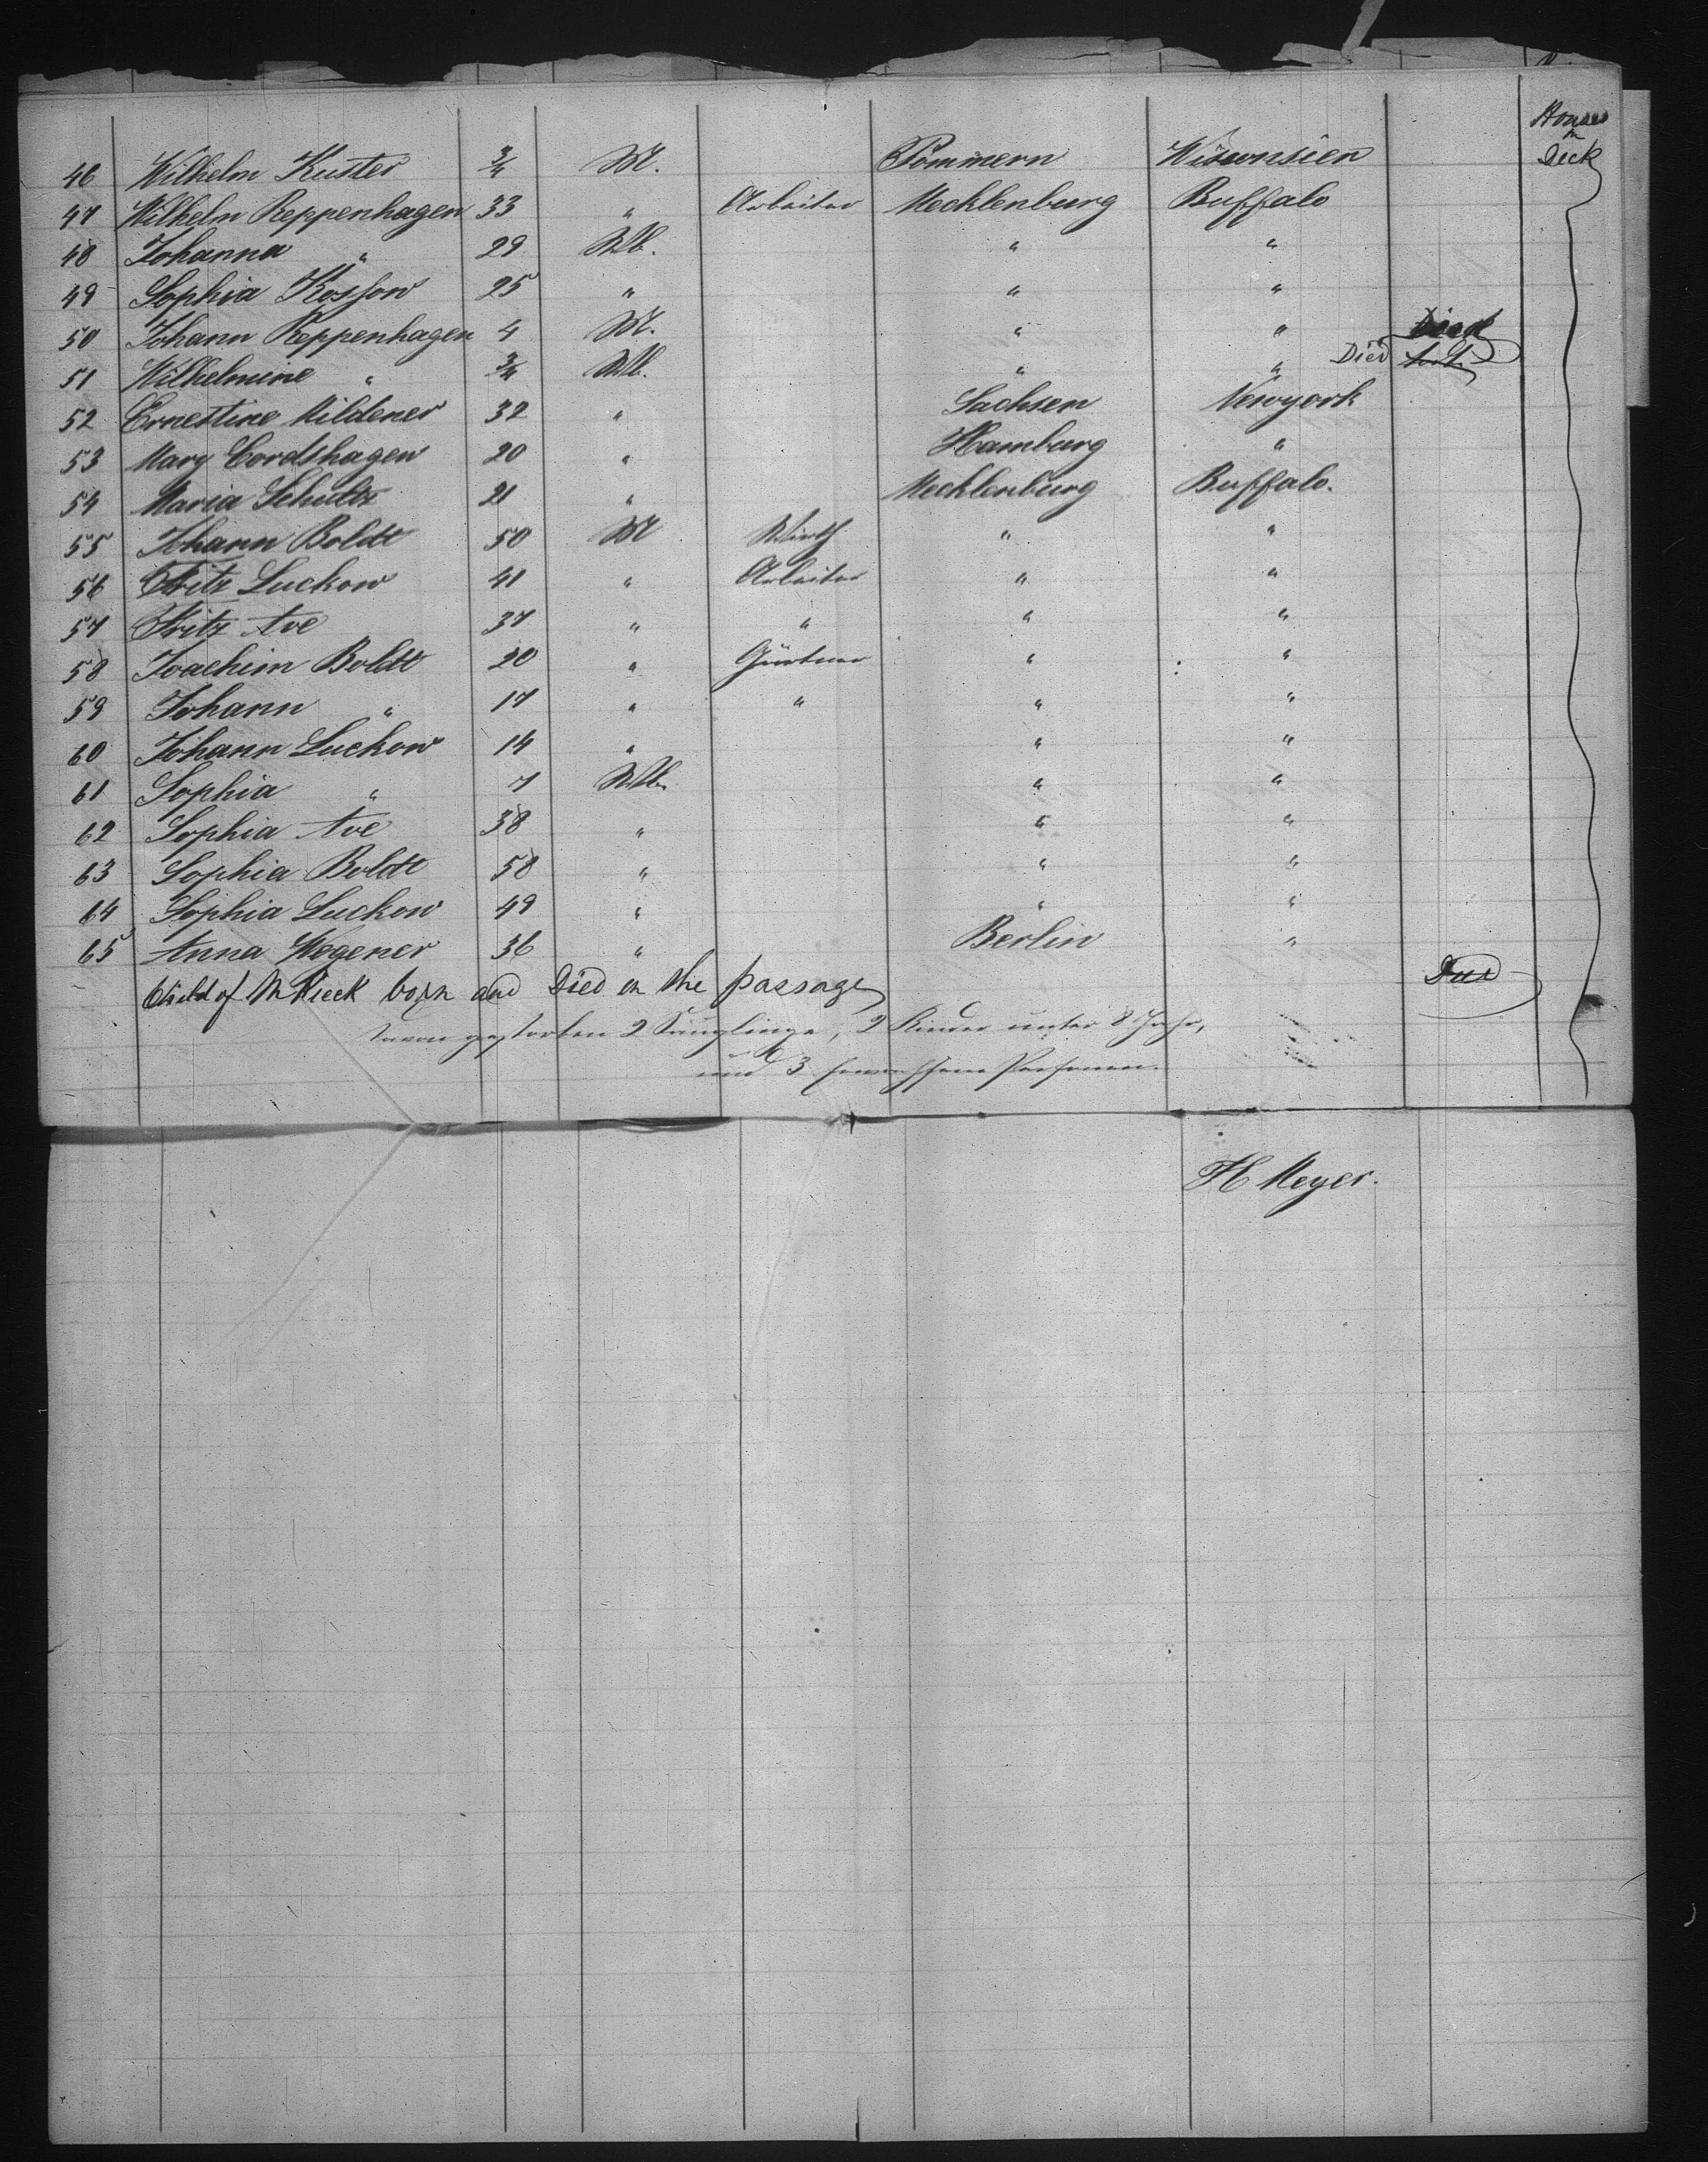 Houses
on
Deck
46 Wilhelm Kuster 3/4 M. Pommern Wisconsien
47 Wilhelm Reppenhagen 33 " Arbeiter Mecklenburg Buffalo
48 Johanna " 29 Wb. " "
49 Sophia Kossow 25 " " "
50 Johann Reppenhagen 4 M. " " Died
51 Wilhelmine " 3/4 Wb. " " Died
52 Ernestine Mildener 32 " Sachsen Newyork
53 Mary Cordshagen 20 " Hamburg "
54 Maria Schultz 21 " Mecklenburg Buffalo.
55 Johann Boldt 50 M Wirth " "
56 Fritz Luckow 41 " Arbeiter " "
57 Fritz Ave 37 " " " "
58 Joachim Boldt 20 " Gärtner " "
59 Johann " 17 " " " "
60 Johann Luckow 14 " " "
61 Sophia " 7 Wb. " "
62 Sophia Ave 38 " " "
63 Sophia Boldt 58 " " "
64 Sophia Luckow 49 " " "
65 Anna Wegener 36 " Berlin "
Child of M Rieck born and Died on the passage Died
davon gestorben 2 Säuglinge, 2 Kinder unter 8 Jahr,
und 3 erwachsene Personen.
H Meyer.